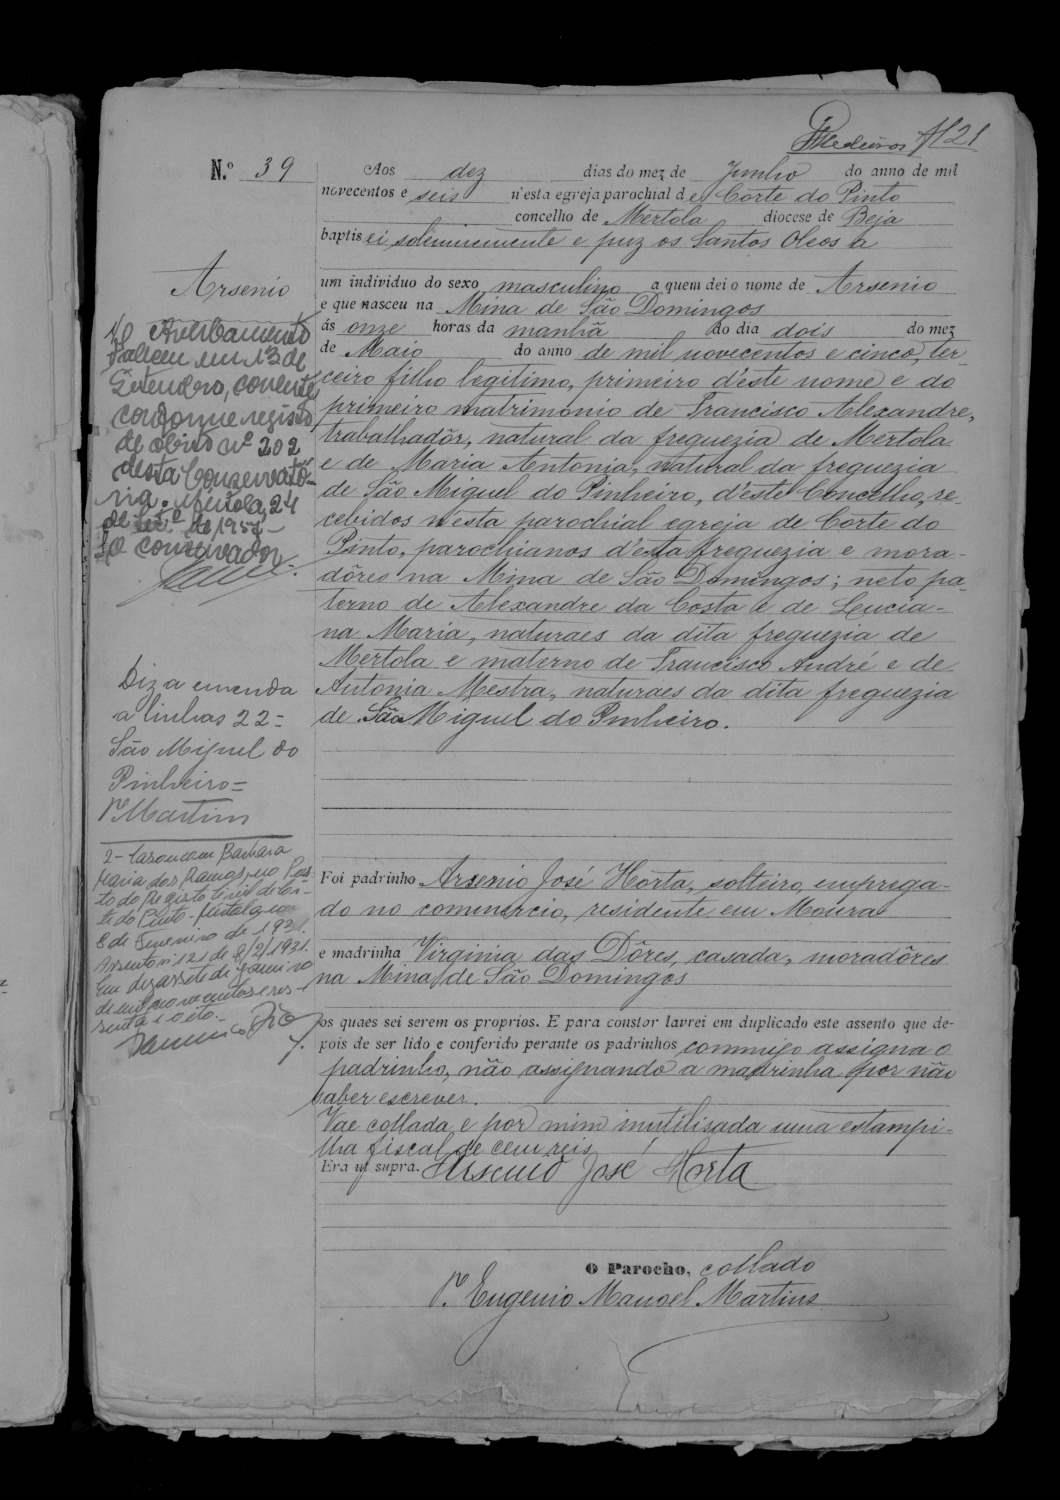 Medeiros 121
N.º 39
Aos dez dias do mez de Junho do anno de mil
novecentos e seis n'esta egreja parochial de Corte do Pinto
concelho de Mertola diocese de Beja
baptisei solemnemente e puz os Santos Oleos a
um individuo do sexo masculino a quem dei o nome de Arsenio
e que nasceu na Mina de São Domingos
ás onze horas da manhã do dia dois do mez
de Maio do anno de mil novecentos e cinco, ter-
ceiro filho legitimo, primeiro d'este nome e do
primeiro matrimonio de Francisco Alexandre,
trabalhadôr, natural da freguezia de Mertola
e de Maria Antonia, natural da freguezia
de São Miguel do Pinheiro, d'este Concelho, re-
cebidos n'esta parochial egreja de Corte do
Pinto, parochianos d'esta freguezia e mora-
dôres na Mina de São Domingos; neto pa-
terno de Alexandre da Costa e de Lucia-
na Maria, naturaes da dita freguezia de
Mertola e materno de Francisco André e de
Antonia Mestra, naturaes da dita freguezia
de São Miguel do Pinheiro.
Foi padrinho Arsenio José Horta, solteiro, emprega-
do no commercio, residente em Moura
e madrinha Virginia das Dôres, casada, moradôres
na Mina de São Domingos
os quaes sei serem os proprios. E para constar lavrei em duplicado este assento que de-
pois de ser lido e conferido perante os padrinhos commigo assigna o
padrinho, não assignando a madrinha por não
saber escrever.
Vae collada e por mim inutilisada uma estampi-
lha fiscal de cem reis
Era ut supra. Arsenio José Horta
O Parocho, collado
P.e Eugenio Manoel Martins
Arsenio
Averbamento
Faleceu em 13 de
corrente,
conforme registo
de obito nº 202
desta Conservató-
ria. Mertola, 24
de 195
O conservador
Diz a emenda
a linhas 22=
São Miguel do
Pinheiro=
P.e Martins
2- Casou com Barbara
Maria dos Ramos, no Pos-
to do Registo Civil de Cor-
te do Pinto - Mertola, em
8 de Fevereiro de 1931.
Assento nº 121 de 8/2/1931.
Em dezassete de Janeiro
de mil novecentos e ses-
senta e oito.-